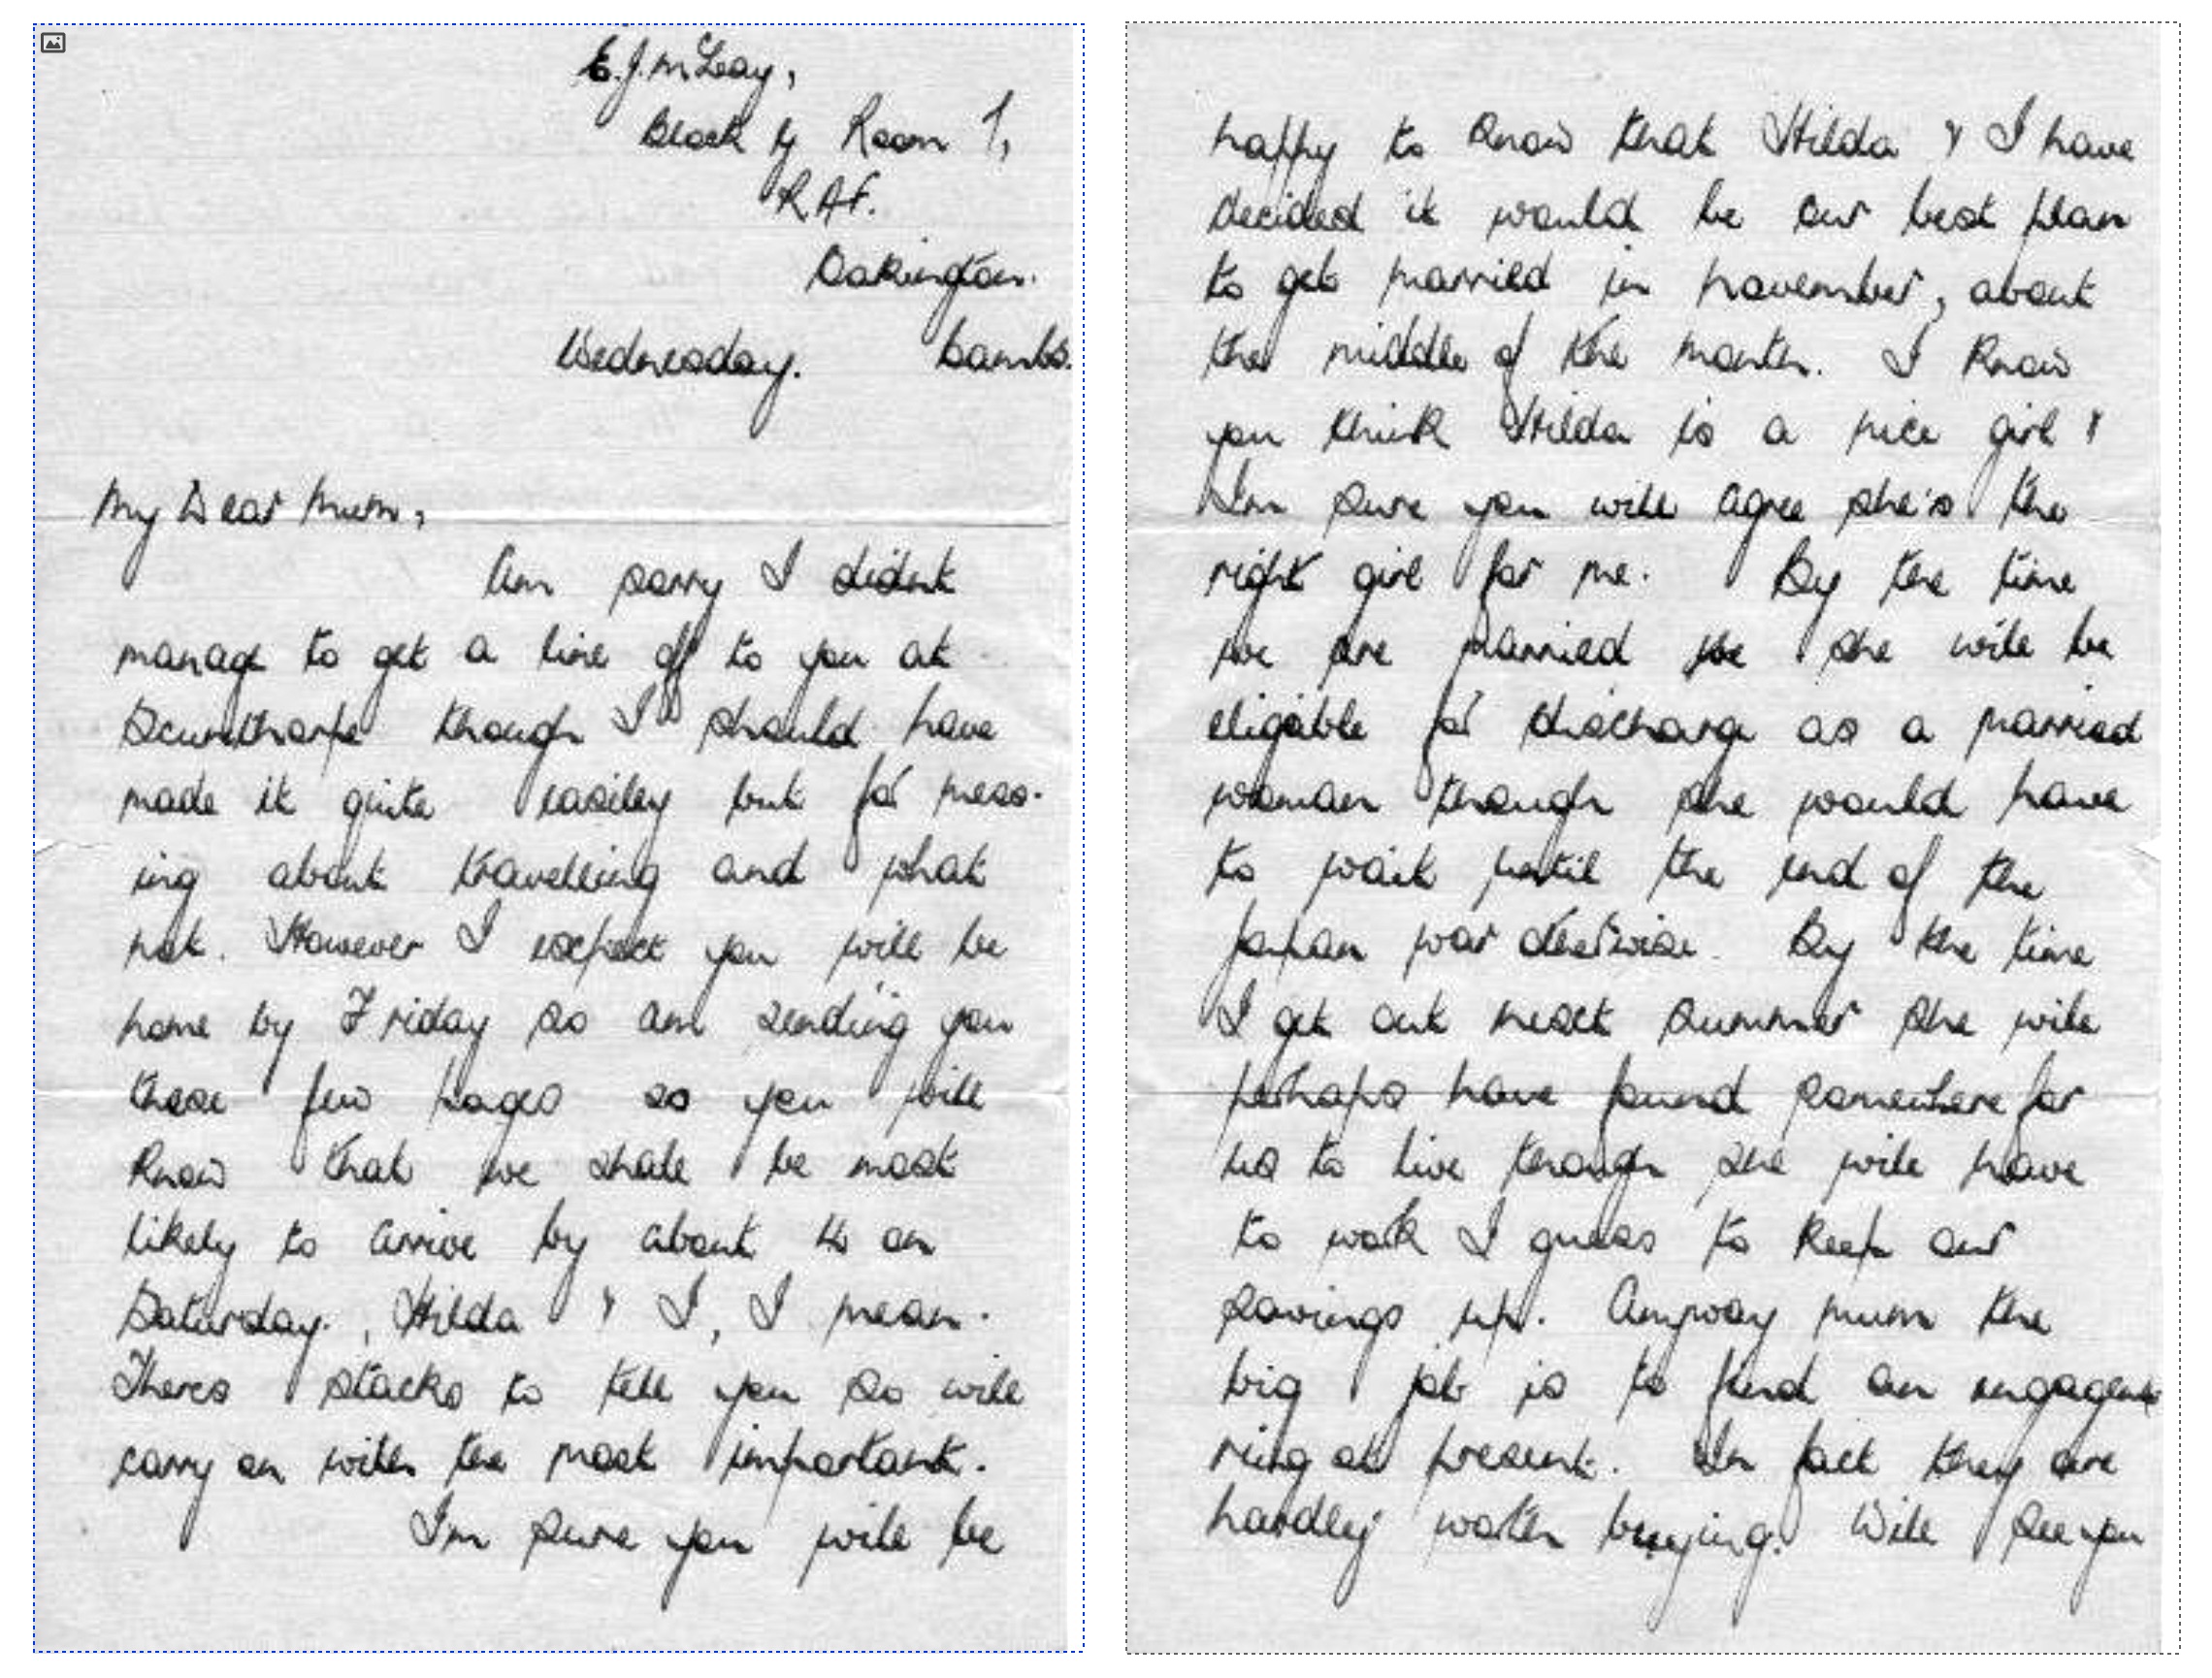 E.J. McLeay,
Block 4 Room 1,
R.A.F.
Oakington.
Wednesday. Cambs.
My Dear Mum,
Am sorry I didnt
manage to get a line off to you at
Scunthorpe though I should have
made it quite easiley but for mess-
ing about travelling and what
not. However I expect you will be
home by Friday so am sending you
these few pages so you will
know that we shall be most
likely to arrive by about 4 on
Saturday., Hilda & I, I mean.
Theres stacks to tell you so will
carry on with the most important.
Im sure you will be
happy to know that Hilda & I have
decided it would be our best plan
to get married in november, about
the middle of the month. I know
you think Hilda is a nice girl &
Im sure you will agree she's the
right girl for me. By the time
we are married she will be
eligible for discharge as a married
woman though she would have
to wait until the end of the
Japan war otherwise. By the time
I get out next summer she will
perhaps have found somewhere for
us to live though she will have
to work I guess to keep our
savings up. Anyway mum the
big job is to find an
ring at present. In fact they are
hardley worth buying. Will see you